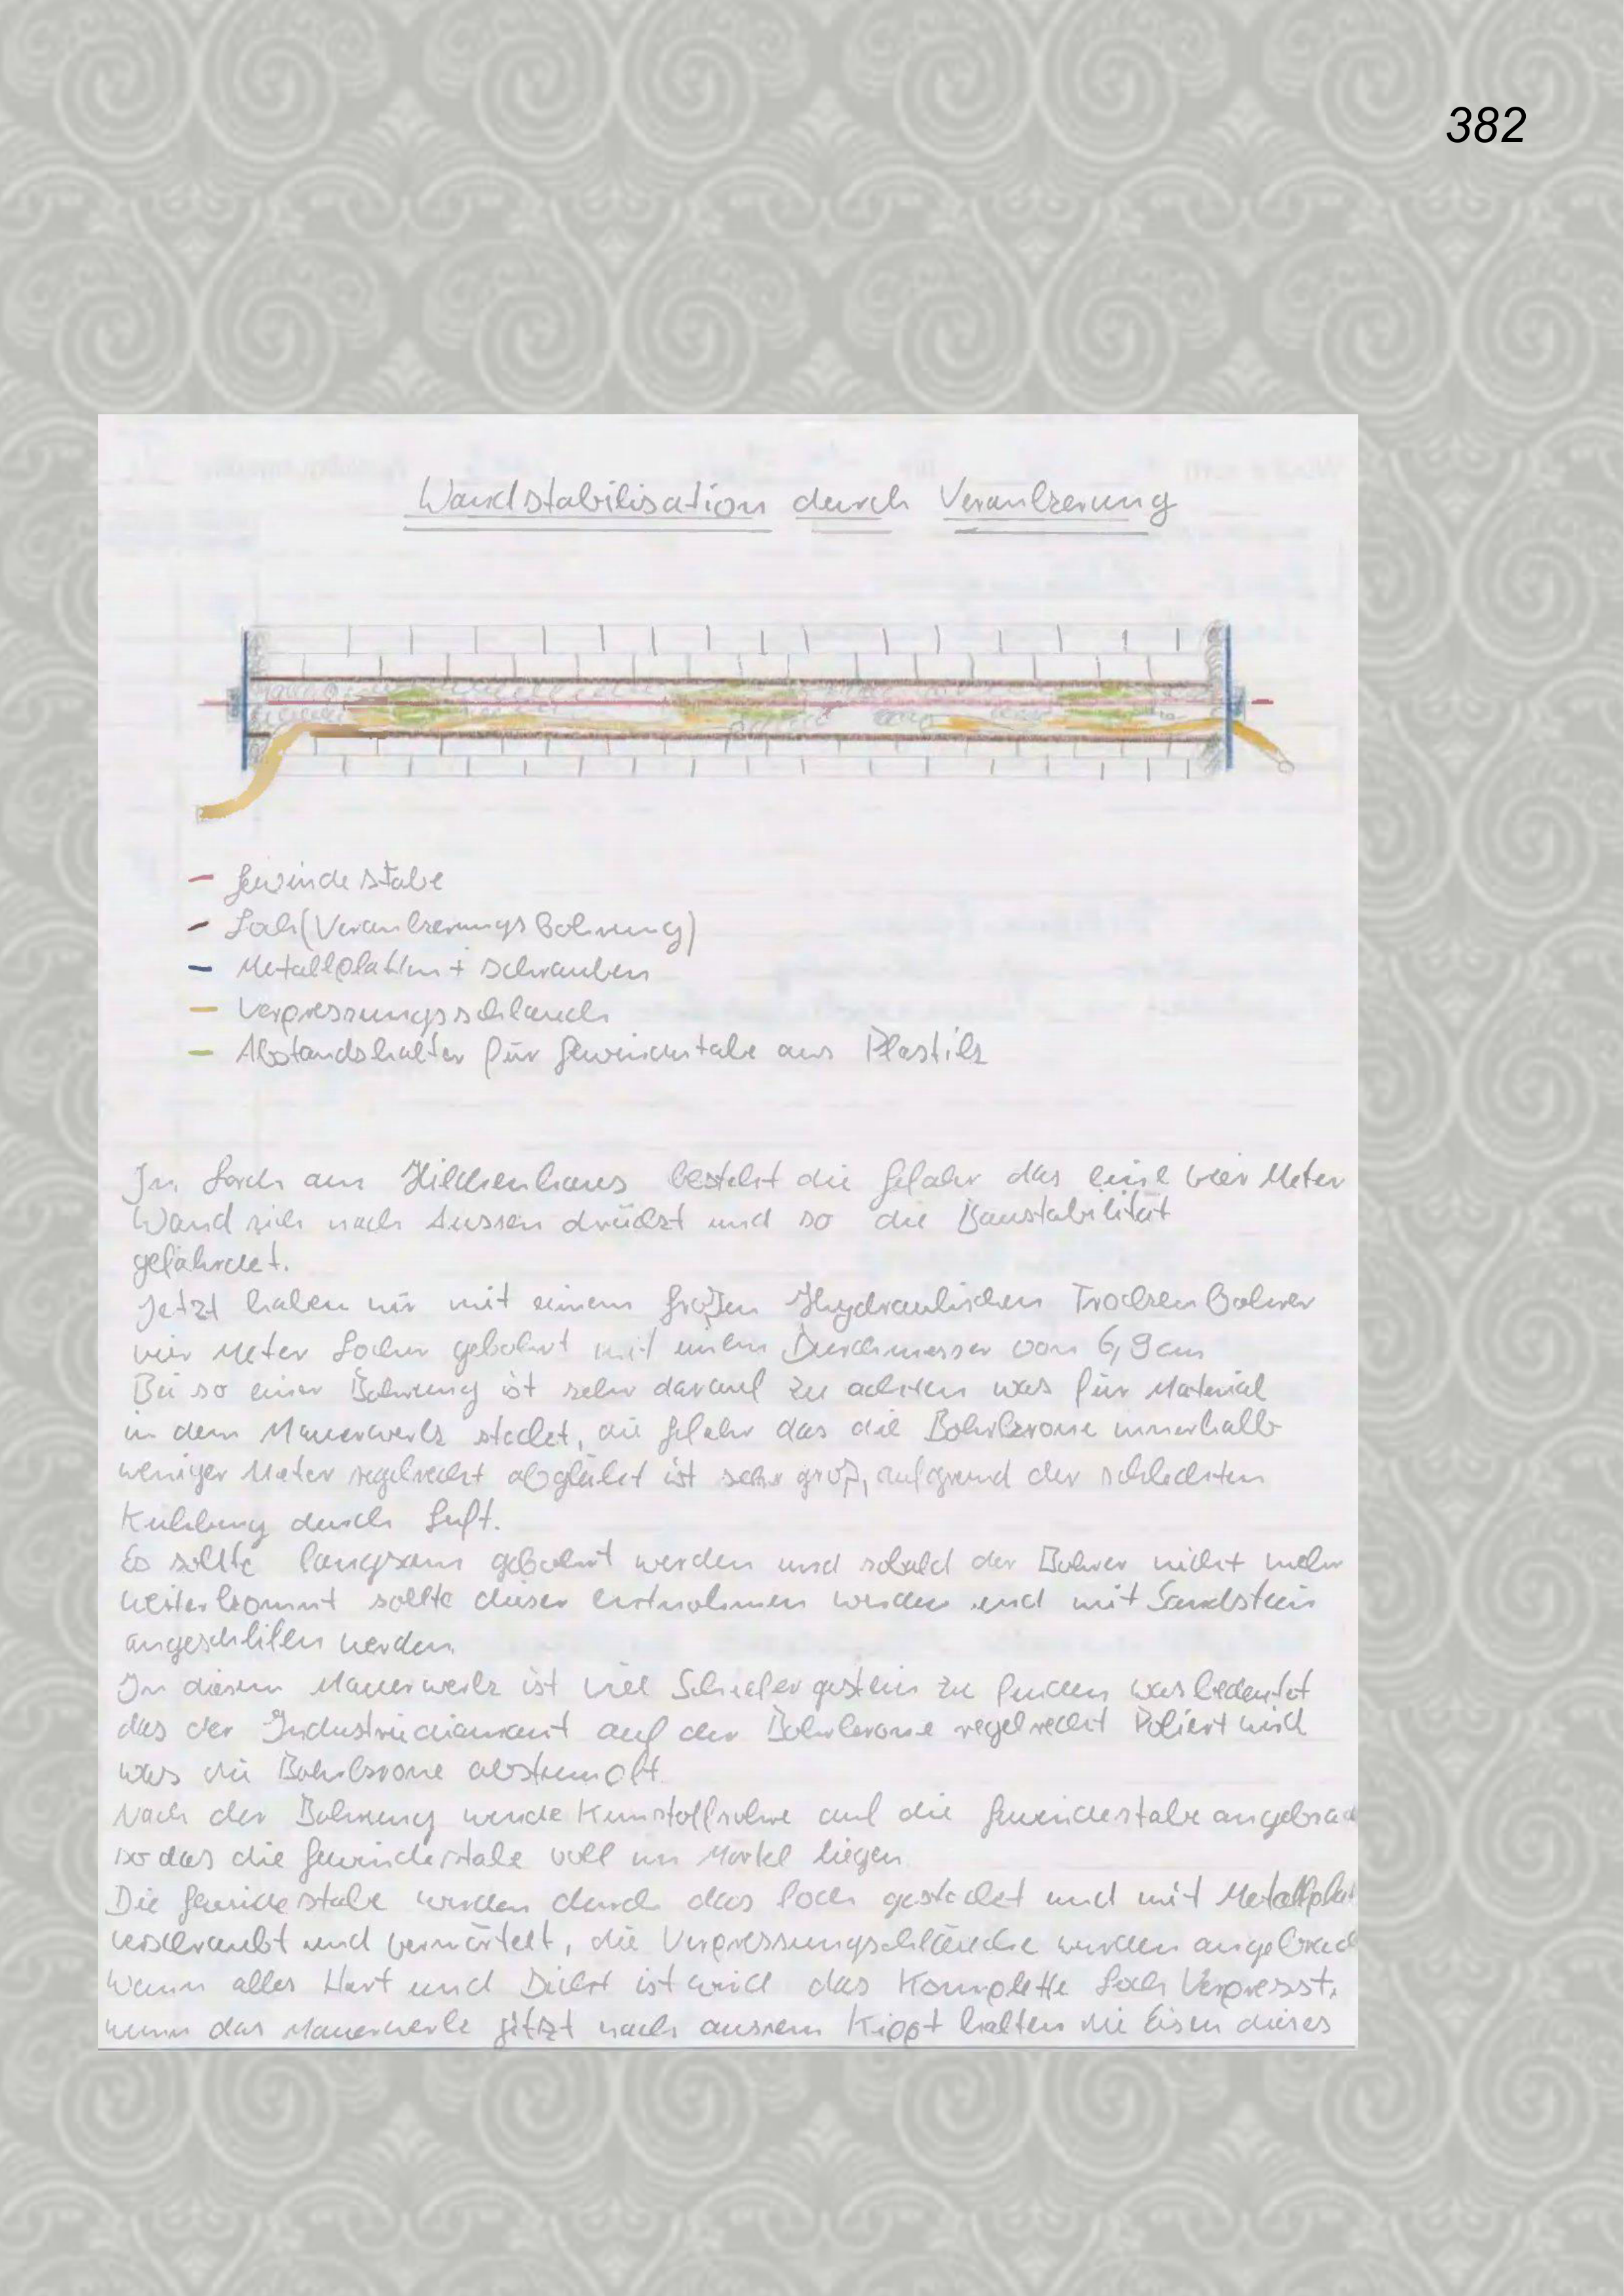 382
Wandstabilisation durch Verankerung
Gewindestabe
Loch (Verankerungsbohrung)
Metallplatten + schrauben
Verpressungsschlauch
Abstandshalter für Gewindestabe aus Plastik
In Lorch am Hilchenhaus besteht die Gefahr das eine vier Meter
Wand sich nach Aussen drückt und so die Baustabilität
gefährdet.
Jetzt haben wir mit einem großen Hydraulischen Trocken Bohrer
vier Meter Locher gebohrt mit einem Durchmesser von 6,9cm
Bei so einer Bohrung ist sehr darauf zu achten was für Material
in dem Mauerwerk stecket, die Gefahr das die Bohrkrone innerhalb
weniger Meter regelrecht abglüht ist sehr groß, aufgrund der schlechten
Kuhlung durch Luft.
Es sollte langsam gebohrt werden und sobald der Bohrer nicht mehr
weiterkommt sollte dieser entnohmen werden und mit Sandstein
angeschliffen werden.
In diesem Mauerwerk ist viel Schiefergestein zu finden was bedeutet
das der Industriediamant auf der Bohrkrone regelrecht Poliert wird
was die Bohrkrone abstumpft.
Nach der Bohrung werde auf die Gewindestabe
so das die Gewindestabe voll im Mörtel liegen
Die Gewindestabe werden durch das Loch gestecket und mit
verschraubt und vermörtelt, die Verpressungschläuche werden
Wenn alles Hart und Dicht ist wird das Komplette Loch Verpresst,
wenn das Mauerwerk jetzt nach aussen Kippt halten die Eisen dieses